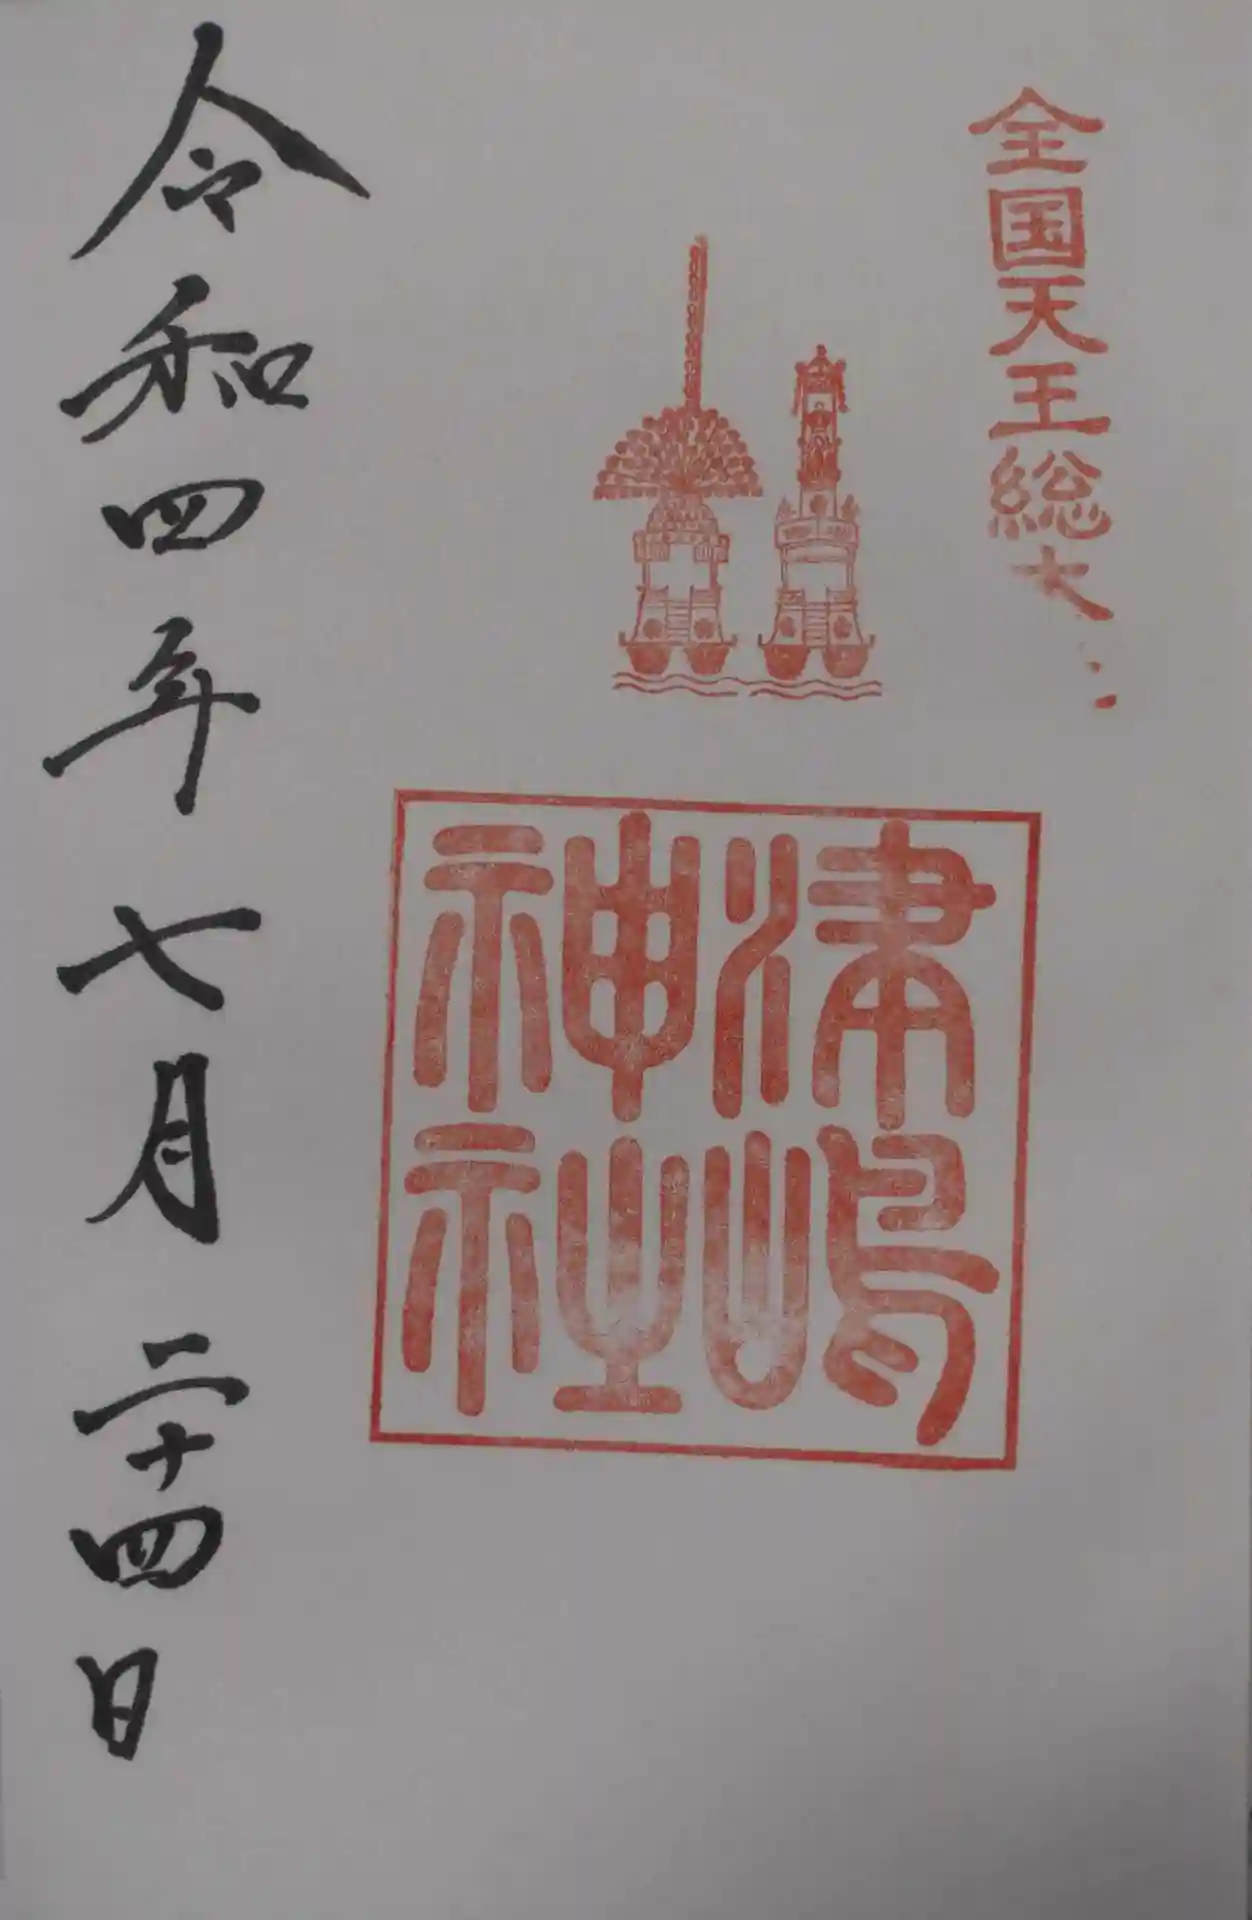 全国天王総
津嶋
神社
令和四年七月二十四日